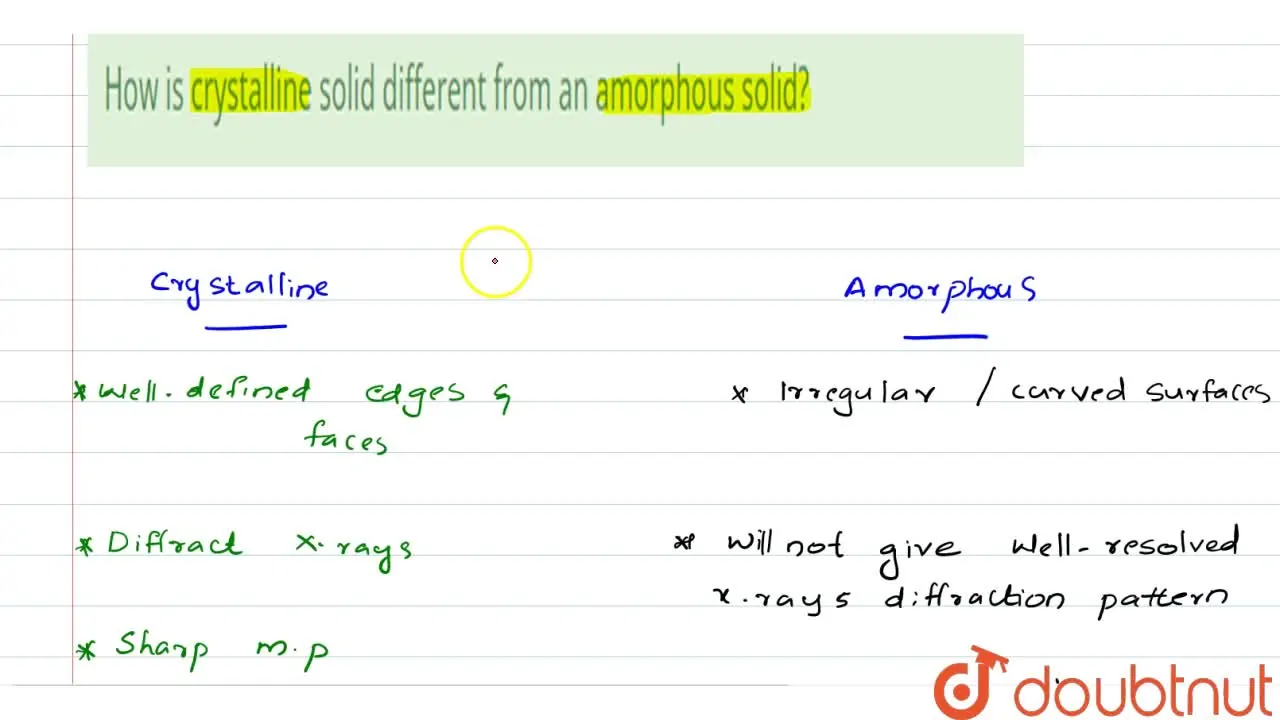 How is crystalline solid different from an amorphous solid?
Crystalline
Amorphous
* Well-defined edges &
faces
* Irregular / curved surfaces
* Diffract x-rays
* Will not give well-resolved
x-rays diffraction pattern
* Sharp m.p
doubtnut